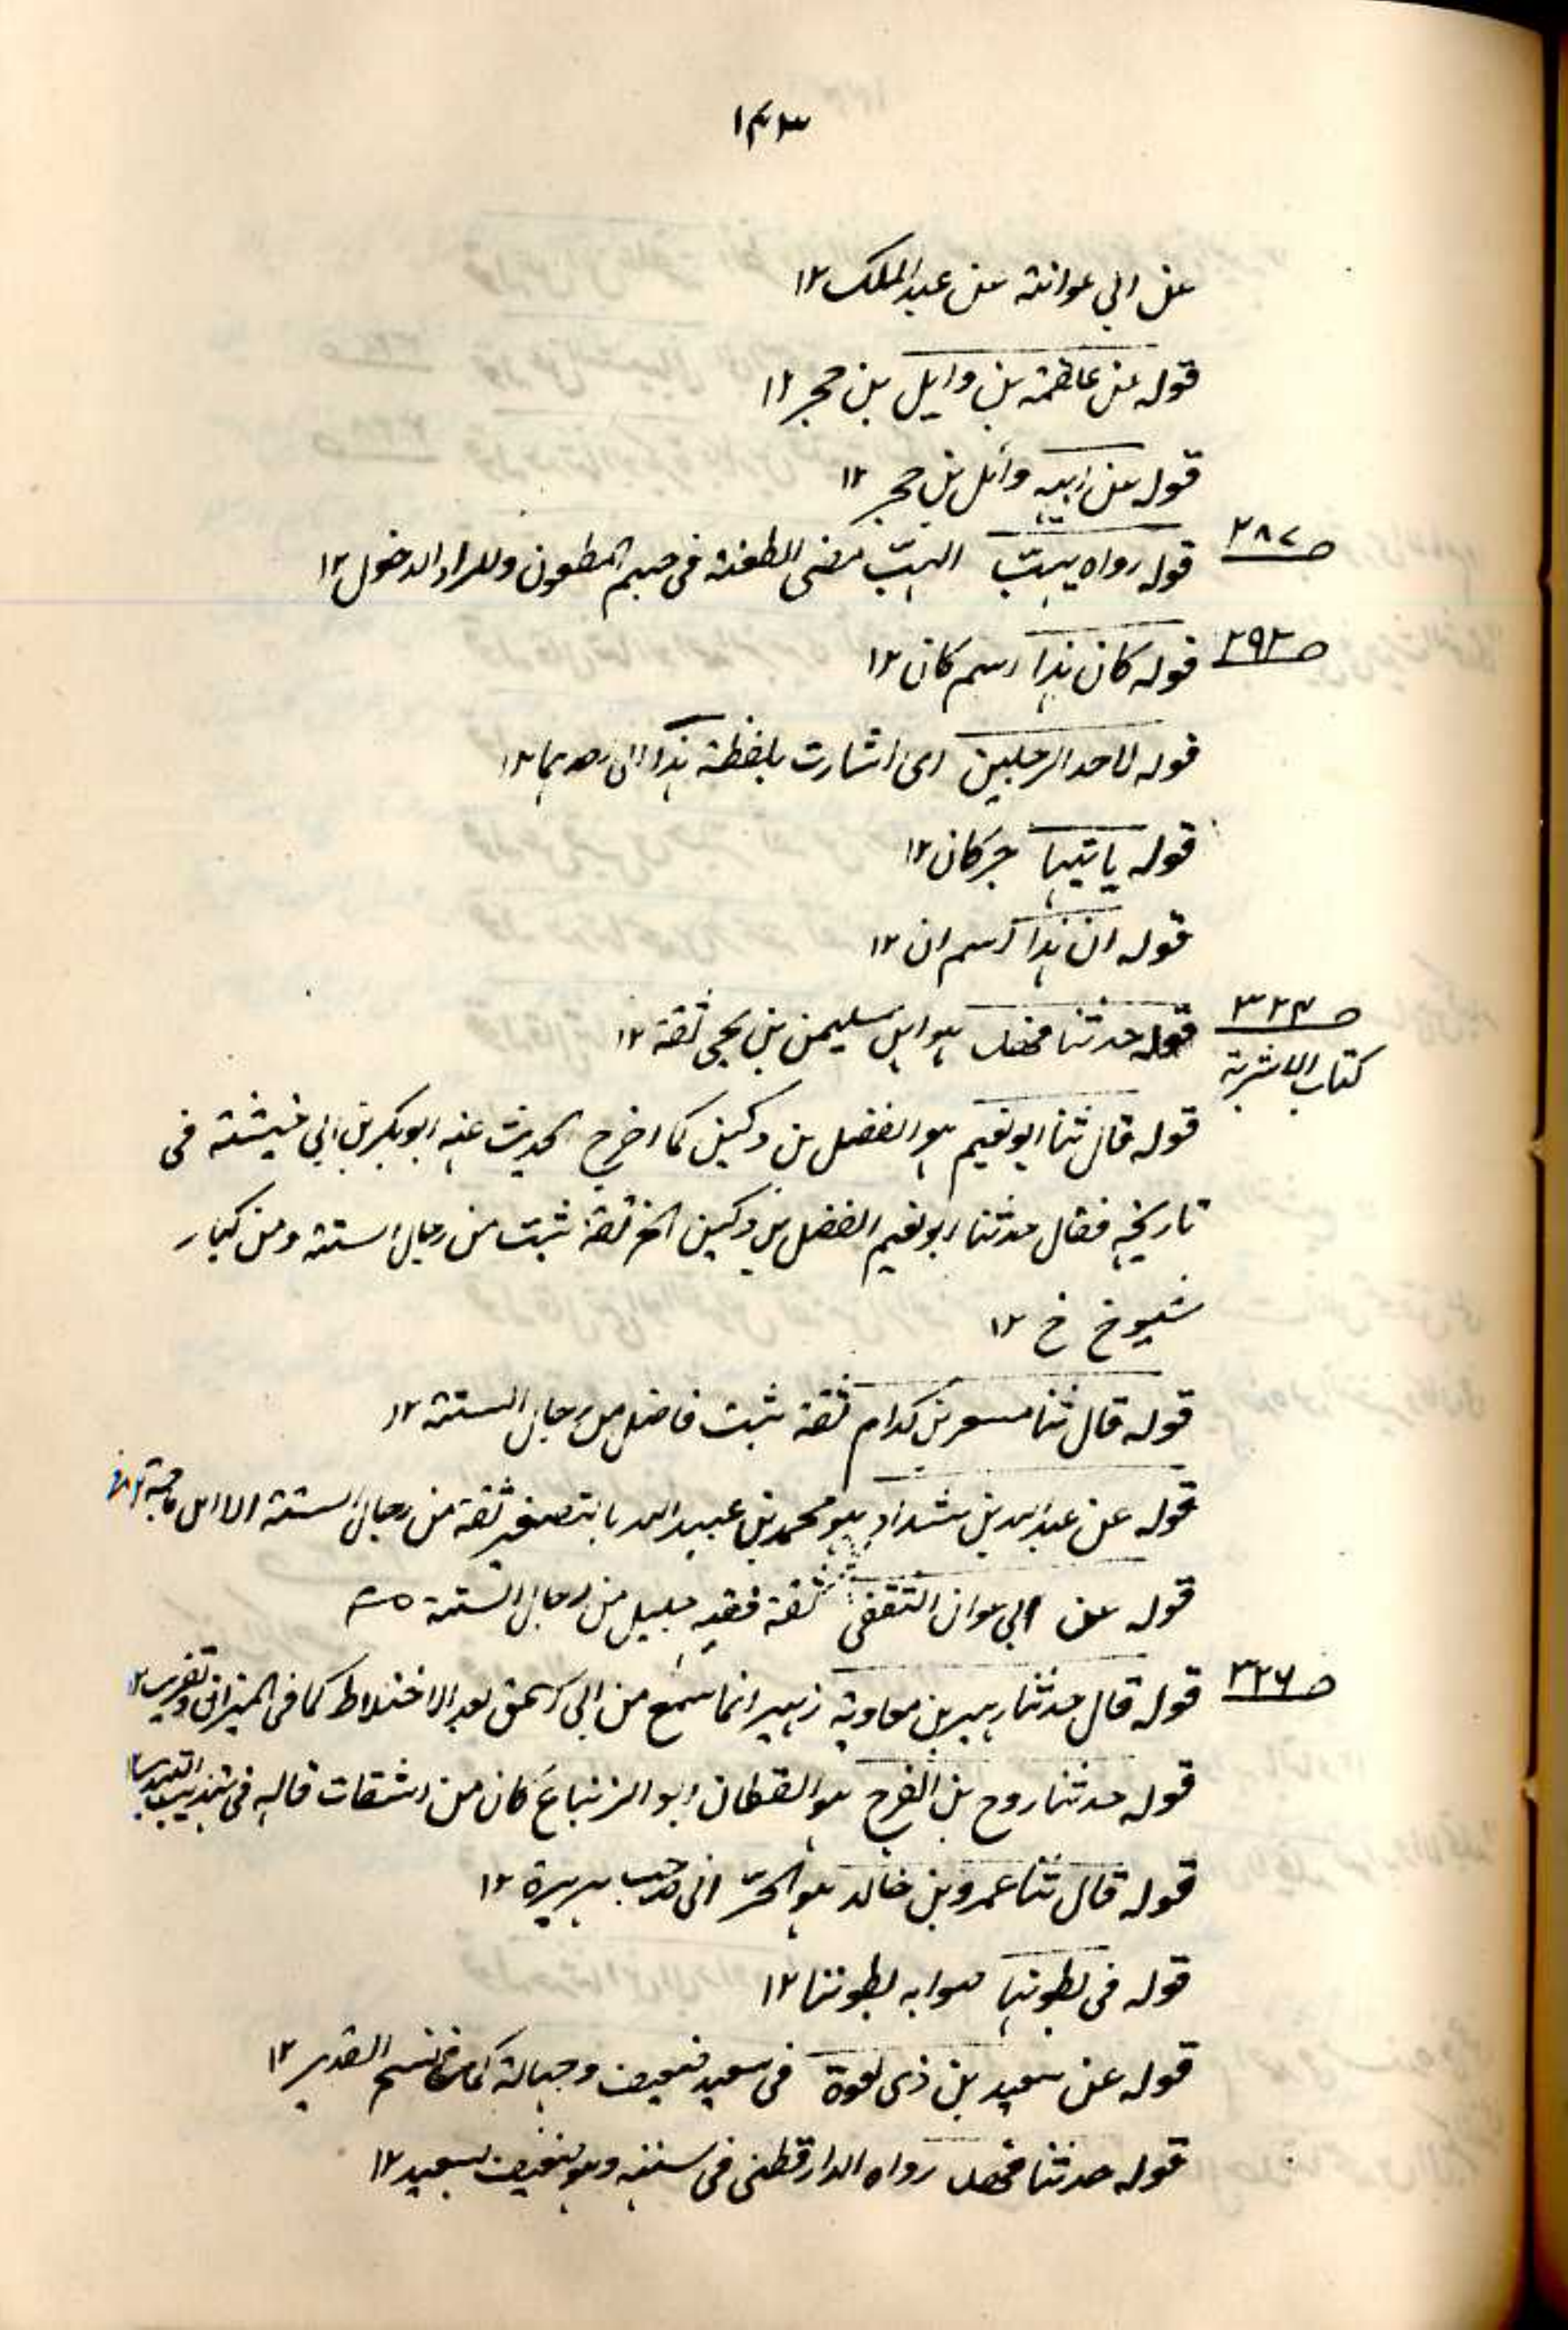 ۱۴۳
عن ابی عوانة عن عبد الملک ۱۲
قوله عن علقمة بن وایل بن حجر ۱۲
قوله عن ابیه وائل بن حجر ۱۲
ص ۲۸۷
قوله رواه یهبّت الهبّت مضی الطعنة فی جسم المطعون والمراد الدخول ۱۲
ص ۲۹۲
قوله کان هذا اسم کان ۱۲
قوله لاحد الرجلین ای اشارت بلفظة هذا الی احدهما ۱۲
قوله یاتیها خبر کان ۱۲
قوله ان هذا اسم ان ۱۲
ص ۳۲۴
کتاب الاشربة
قوله حدثنا فهد هو ابن سلیمن بن یحی ثقة ۱۲
قوله قال ثنا ابو نعیم هو الفضل بن دکین کما اخرج الحدیث عنه ابو بکر بن ابی خیثمة فی
تاریخه فقال حدثنا ابو نعیم الفضل بن دکین الخ ثقة ثبت من رجال الستة ومن کبار
شیوخ خ ۱۲
قوله قال ثنا مسعر بن کدام ثقة ثبت فاضل من رجال الستة ۱۲
قوله عن عبد الله بن شداد هو محمد بن عبید الله بالتصغیر ثقة من رجال الستة الا ابن ماجة ۱۲
قوله عن ابی عوان الثقفی ثقة فقیه جلیل من رجال الستة
ص ۳۲۶
قوله قال حدثنا زهیر بن معاویة زهیر انما سمع من ابی اسحق بعد الاختلاط کما فی المیزان وتقریب ۱۲
قوله حدثنا روح بن الفرج هو القطان ابو الزنباع کان من الثقات قاله فی تهذیب التهذیب ۱۲
قوله قال ثنا عمرو بن خالد هو الحرّانی ۱۲
قوله فی بطونها صوابه بطوننا ۱۲
قوله عن سعید بن ذی لعوة فی سعید ضعف وجهالة کما فی فتح القدیر ۱۲
قوله حدثنا فهد رواه الدارقطنی فی سننه وهو ضعیف لسعید ۱۲